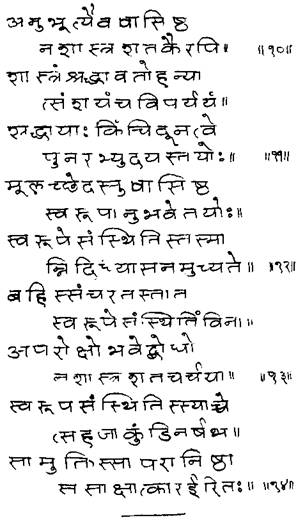 अनुभूत्यैव वासिष्ठ
न शास्त्र शतकैरपि। ॥१०॥
शास्त्रं श्रद्धावतो हन्या
त्संशयंच विपर्ययं॥
श्रद्धायाः किंचिदूनत्वे
पुनरभ्युदयस्तयोः॥ ॥११॥
मूलच्छेदस्तु वासिष्ठ
स्वरूपानुभवे तयोः॥
स्वरूपे संस्थितिस्तस्मा
न्निदिध्यासनमुच्यते॥ ॥१२॥
बहिस्संचरतस्तात
स्वरूपे संस्थितिं विना॥
अपरोक्षो भवेद्बोधो
न शास्त्र शतचर्चया॥ ॥१३॥
स्वरूप संस्थितिस्स्याच्चे
त्सहजा कुंडिनर्षभ॥
सा मुक्तिस्सा परा निष्ठा
स साक्षात्कार ईरितः॥ ॥१४॥